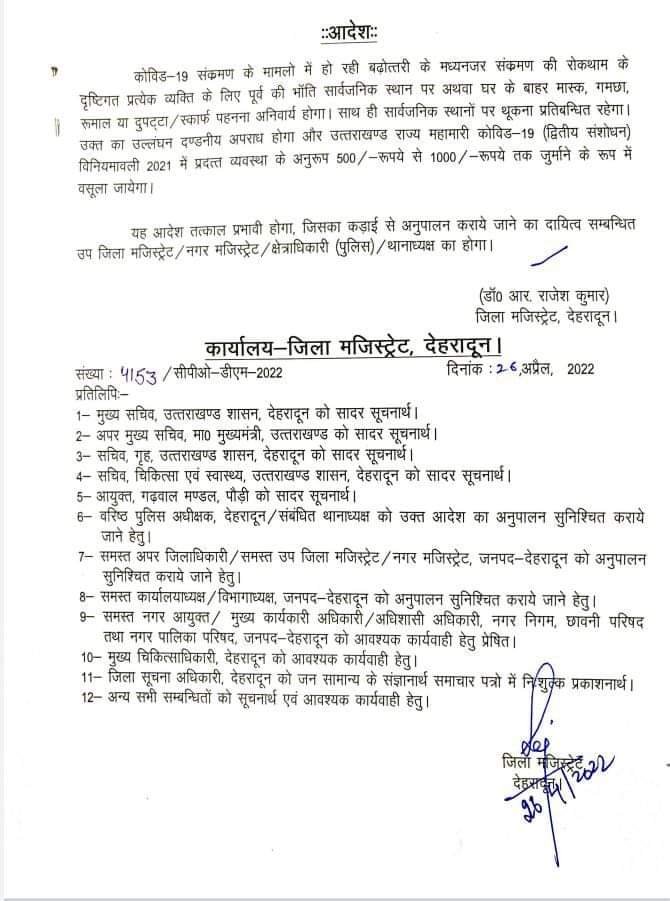 ::आदेश::
कोविड–19 संक्रमण के मामलो में हो रही बढ़ोत्तरी के मध्यनजर संक्रमण की रोकथाम के
दृष्टिगत प्रत्येक व्यक्ति के लिए पूर्व की भॉति सार्वजनिक स्थान पर अथवा घर के बाहर मास्क, गमछा,
रूमाल या दुपट्टा/स्कार्फ पहनना अनिवार्य होगा। साथ ही सार्वजनिक स्थानों पर थूकना प्रतिबन्धित रहेगा।
उक्त का उल्लंघन दण्डनीय अपराध होगा और उत्तराखण्ड राज्य महामारी कोविड–19 (द्वितीय संशोधन)
विनियमावली 2021 में प्रदत्त व्यवस्था के अनुरूप 500/–रूपये से 1000/–रूपये तक जुर्माने के रूप में
वसूला जायेगा।
यह आदेश तत्काल प्रभावी होगा, जिसका कड़ाई से अनुपालन कराये जाने का दायित्व सम्बन्धित
उप जिला मजिस्ट्रेट/नगर मजिस्ट्रेट/क्षेत्राधिकारी (पुलिस)/थानाध्यक्ष का होगा।
(डॉ0 आर. राजेश कुमार)
जिला मजिस्ट्रेट, देहरादून।
कार्यालय–जिला मजिस्ट्रेट, देहरादून।
संख्या : 4153 /सीपीओ–डीएम–2022 दिनांक : 26,अप्रैल, 2022
प्रतिलिपिः–
1– मुख्य सचिव, उत्तराखण्ड शासन, देहरादून को सादर सूचनार्थ।
2– अपर मुख्य सचिव, मा0 मुख्यमंत्री, उत्तराखण्ड को सादर सूचनार्थ।
3– सचिव, गृह, उत्तराखण्ड शासन, देहरादून को सादर सूचनार्थ।
4– सचिव, चिकित्सा एवं स्वास्थ्य, उत्तराखण्ड शासन, देहरादून को सादर सूचनार्थ।
5– आयुक्त, गढ़वाल मण्डल, पौड़ी को सादर सूचनार्थ।
6– वरिष्ठ पुलिस अधीक्षक, देहरादून/संबंधित थानाध्यक्ष को उक्त आदेश का अनुपालन सुनिश्चित कराये
जाने हेतु।
7– समस्त अपर जिलाधिकारी/समस्त उप जिला मजिस्ट्रेट/नगर मजिस्ट्रेट, जनपद–देहरादून को अनुपालन
सुनिश्चित कराये जाने हेतु।
8– समस्त कार्यालयाध्यक्ष/विभागाध्यक्ष, जनपद–देहरादून को अनुपालन सुनिश्चित कराये जाने हेतु।
9– समस्त नगर आयुक्त/ मुख्य कार्यकारी अधिकारी/अधिशासी अधिकारी, नगर निगम, छावनी परिषद
तथा नगर पालिका परिषद, जनपद–देहरादून को आवश्यक कार्यवाही हेतु प्रेषित।
10– मुख्य चिकित्साधिकारी, देहरादून को आवश्यक कार्यवाही हेतु।
11– जिला सूचना अधिकारी, देहरादून को जन सामान्य के संज्ञानार्थ समाचार पत्रो में निःशुल्क प्रकाशनार्थ।
12– अन्य सभी सम्बन्धितों को सूचनार्थ एवं आवश्यक कार्यवाही हेतु।
जिला मजिस्ट्रेट
देहरादून।
26/4/2022